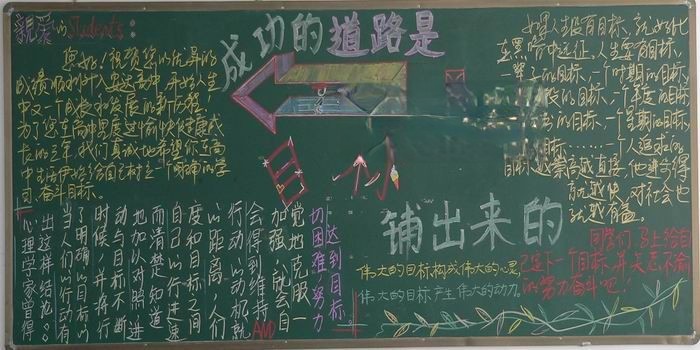 亲爱的Students:
您好!祝贺您以优异的
成绩顺利升入
中又一个成长和发展的新历程。
为了您在高中里度过愉快健康成
长的三年,我们真诚地希望你在高
中生活伊始给自己树立一个明确的学
习、奋斗目标。
成功的道路是
目
小
铺出来的
如果人生没有目标,就好比
在黑暗中远征,人生要有目标,
一辈子的目标,一个时期的目标,
的目标,一个年度的目标,
的目标,一个星期的目标,
目标……一个人追求的
目标越崇高越直接,他进步得
就越快,对社会也
就越有益。
心理学家曾得
出这样结论:
当人们的行动有
了明确的目标的
时候,并将行
动与目标不断
地加以对照,进
而清楚知道
自己的行进速
度和目标之间
的距离,人们
行动的动机就
会得到维持
加强,就会自
觉地克服一
切困难,努力
达到目标
AND
伟大的目标构成伟大的心灵,
伟大的目标产生伟大的动力。
同学们,马上给自
己定下一个目标,并矢志不渝
的努力奋斗吧!